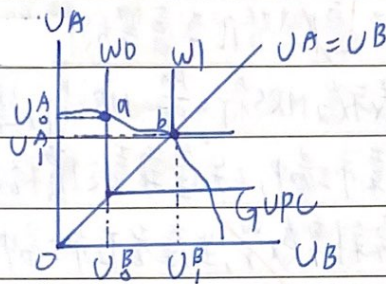 UA
W0 W1 UA=UB
U₀ᴬ a
U₁ᴬ b
GUPC
O U₀ᴮ U₁ᴮ UB